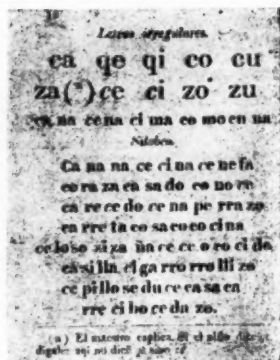 Letras irregulares.
ca qe qi co cu
za(*) ce ci zo zu
ca na ce na ci ma co mo cu na
Silabeo.
Ca na na ce ci na ce ne fa
co ra za ca sa do co no ce
ca re ce do ce na pe rra zo
ca rre ta co sa co co ci na
ce lo so zi za ña ce ce o ro ci do
ca si lla, ci ga rro rro lli zo
ce pi llo se du ce ca sa ca
rre ci bo ce du zo.
El maestro explica si el niño